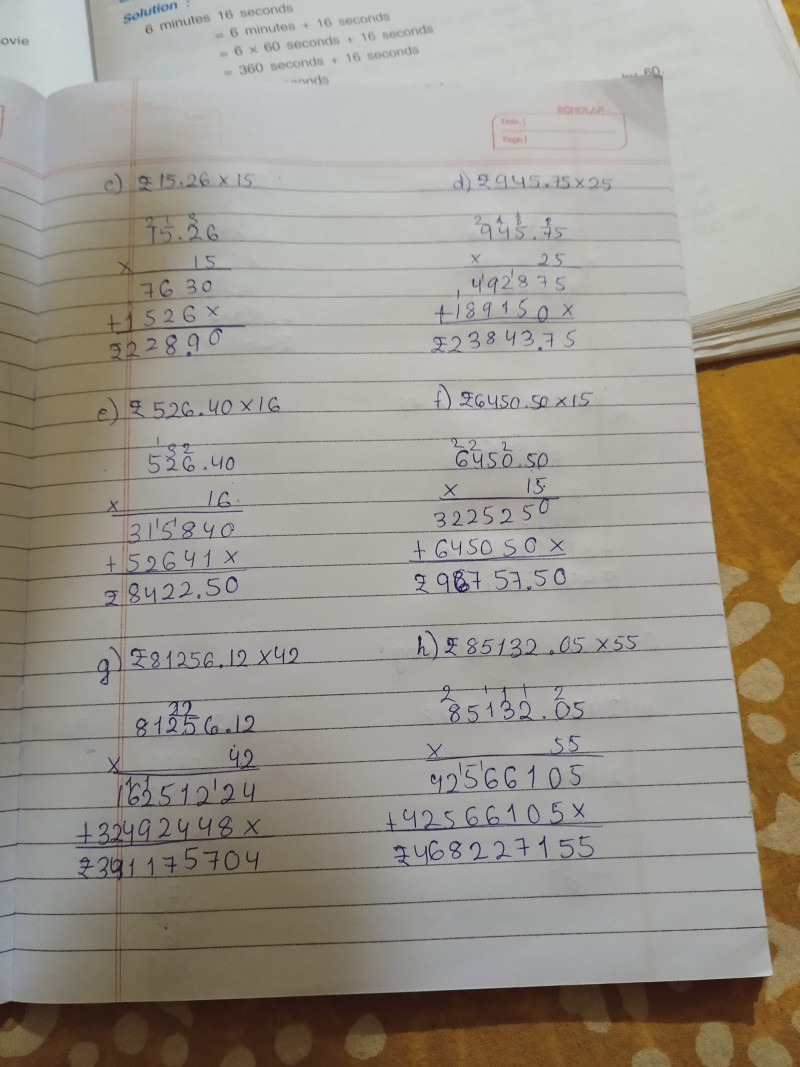 ovie
Solution :
6 minutes 16 seconds
= 6 minutes + 16 seconds
= 6 × 60 seconds + 16 seconds
= 360 seconds + 16 seconds
SCHOLAR
Date
Page
c) ₹15.26×15
2 1 3
15.26
× 15
7630
+1526×
₹228.90
d) ₹945.75×25
945.75
× 25
492875
+189150×
₹23843.75
e) ₹526.40×16
1 3 2
526.40
× 16
315840
+52641×
₹8422.50
f) ₹6450.50×15
2 2 2
6450.50
× 15
3225250
+645050×
₹96757.50
g) ₹81256.12×42
22
81256.12
× 42
16251224
+32492448×
₹341175704
h) ₹85132.05×55
2 1 1 1 2
85132.05
× 55
42566105
+42566105×
₹468227155